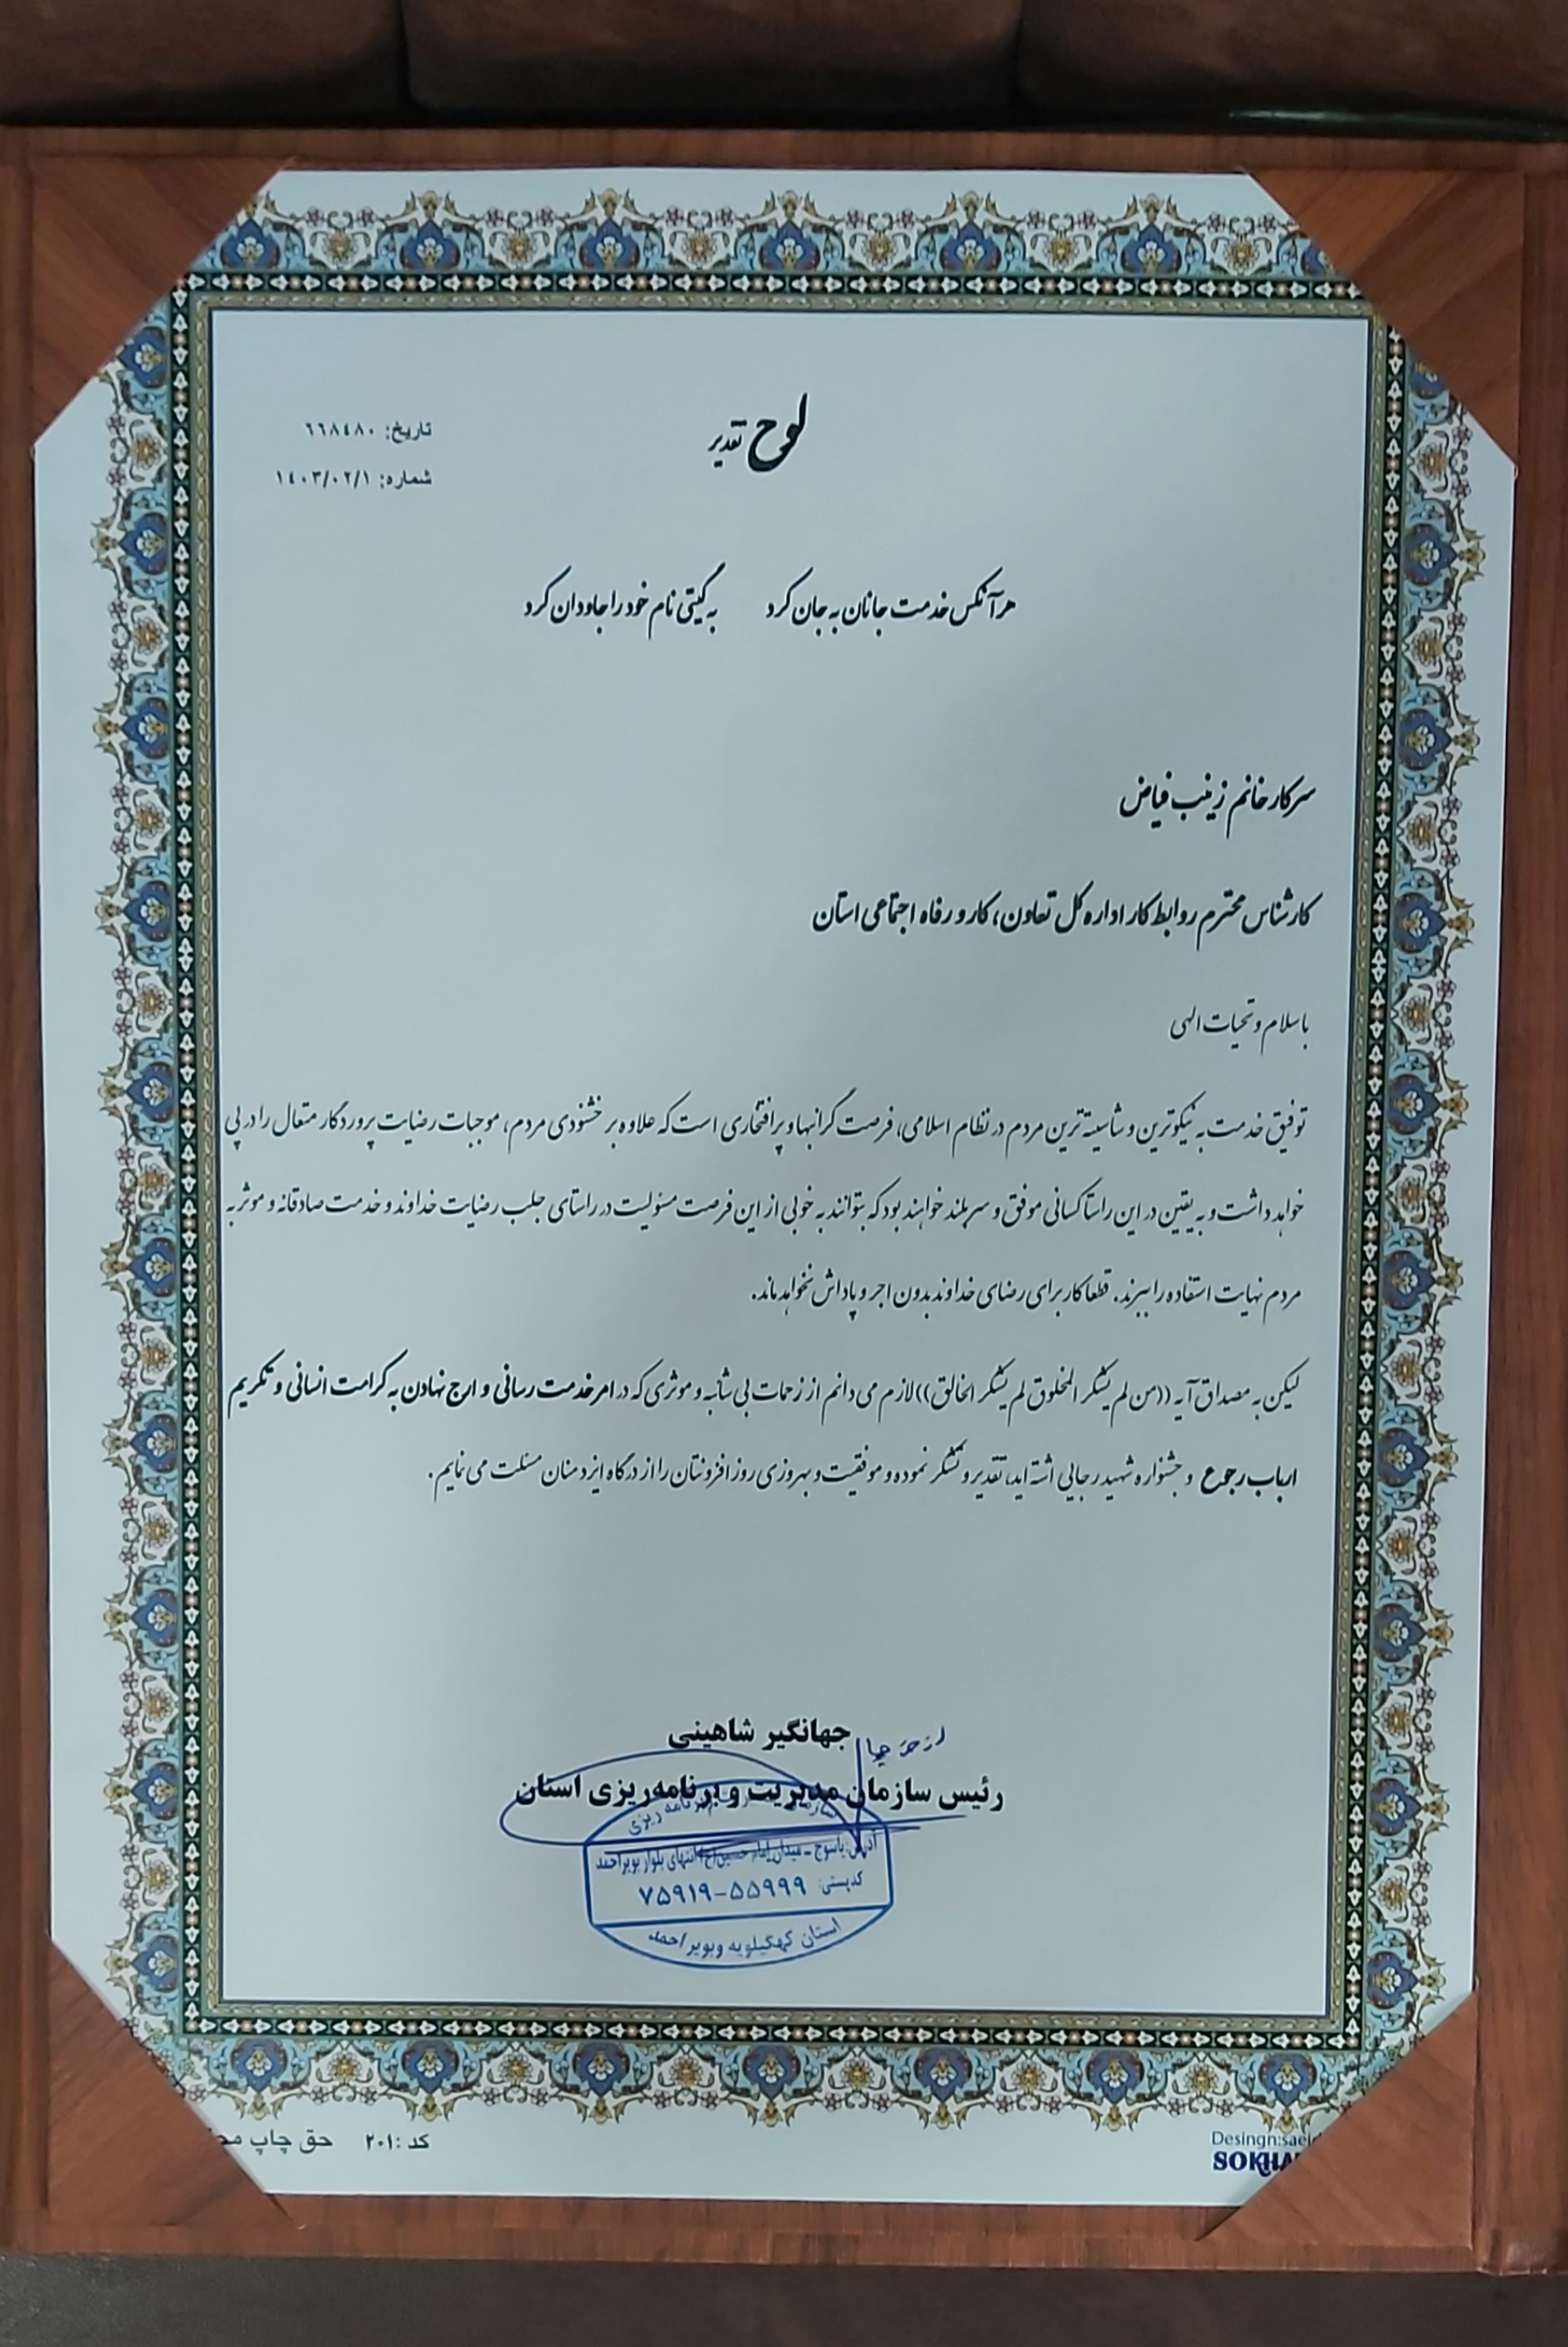 لوح تقدیر
تاریخ: ٦٦٨٤٨٠
شماره: ١٤٠٣/٠٢/١
هر آنکس خدمت جانان به جان کرد به گیتی نام خود را جاودان کرد
سرکار خانم زینب فیاض
کارشناس محترم روابط کار اداره کل تعاون، کار و رفاه اجتماعی استان
با سلام و تحیات الهی
توفیق خدمت به نیکوترین و شایسته ترین مردم در نظام اسلامی، فرصت گرانبها و پرافتخاری است که علاوه بر خشنودی مردم، موجبات رضایت پروردگار متعال را در پی
خواهد داشت و به یقین در این راستا کسانی موفق و سربلند خواهند بود که بتوانند به خوبی از این فرصت مسئولیت در راستای جلب رضایت خداوند و خدمت صادقانه و موثر به
مردم نهایت استفاده را ببرند. قطعا کار برای رضای خداوند بدون اجر و پاداش نخواهد ماند.
لیکن به مصداق آیه ((من لم یشکر المخلوق لم یشکر الخالق)) لازم می دانم از زحمات بی شائبه و موثری که در امر خدمت رسانی و ارج نهادن به کرامت انسانی و تکریم
ارباب رجوع و جشنواره شهید رجایی اشته اید، تقدیر و تشکر نموده و موفقیت و بهروزی روزافزونتان را از درگاه ایزد منان مسئلت می نمایم.
جهانگیر شاهینی
رئیس سازمان مدیریت و برنامه‌ریزی استان
برنامه ریزی
آدرس: یاسوج - میدان امام حسین(ع) انتهای بلوار بویراحمد
کدپستی: ۷۵۹۱۹-۵۵۹۹۹
استان کهگیلویه وبویراحمد
کد :۲۰۱ حق چاپ
Desingn:saeid
SOKHA